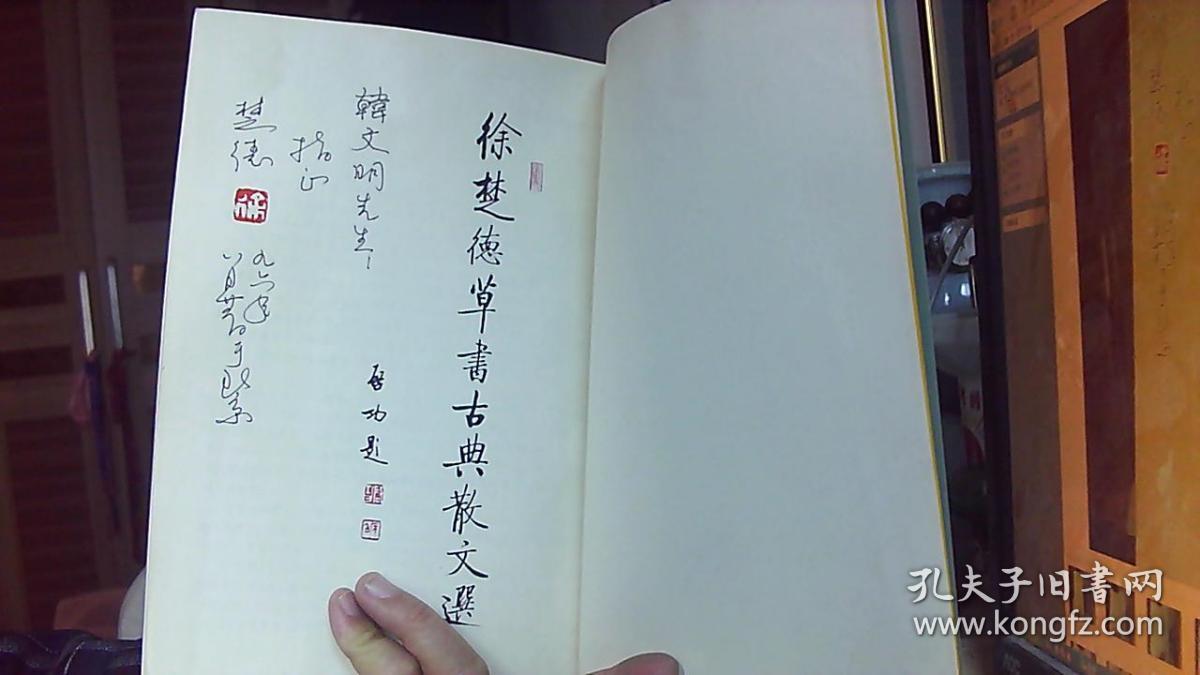 徐楚德草書古典散文選
啓功題
韓文明先生
指正
楚德
徐
九六年
孔夫子旧书网
www.kongfz.com